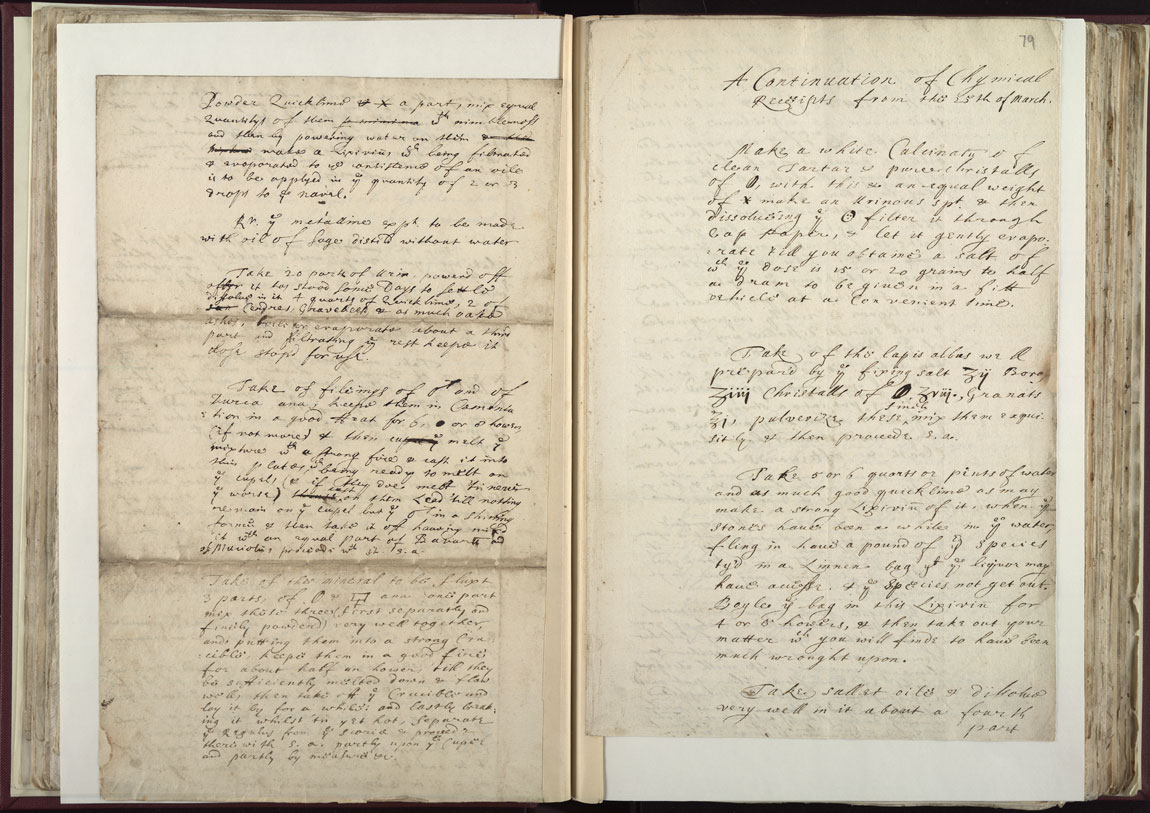 Powder Quicklime & a part, mix equal
Quantitys of them wth nimblenesse
and then by powering water on them
make a Lixivium wch being filtrated
& evaporated to ye consistence of an oile
is to be applyed in ye quantity of 2 or 3
drops to ye navel.
ye metalline expt to be made
with oil of Sage distild without water
Take 20 parts of Urin, powerd off
after it has stood some Days to settle
dissolve in it 4 quarts of Quicklime, 2 of
Cendres Gravelees & as much oake
ashes, evaporate about a third
part and filtrating ye rest keepe it
close stopd for use.
Take of fileings of ♂ and of
ana, keepe them in Cæmenta
tion in a good Heat for 6, or 8 howers
(if not more) & then melt ye
mixture wth a strong fire & cast it into
thin plates, being ready to melt on
ye cupel, (& if they doe melt tis never
ye worse) cast on them Lead till nothing
remain on ye cupel but ye in a shining
forme & then take it off haveing mixd
it wth an equal part of
proceede wth it s. a.
Take of the mineral to be fluxt
parts, of & ana one part
mix these three first separately and
finely powderd very well together,
and putting them into a strong Cru
cible keepe them in a good fire
for about half an hower, till they
be sufficiently melted down & flow
well, then take off ye Crucible and
lay it by for a while: and lastly break
ing it whilst tis yet hot, separate
ye Regulus from ye scoria & proceede
therewith s. a. partly upon ye Cupel
and partly by measure &c.
79
A Continuation of Chymical
Receipts from the 25th of March.
Make a white Calcinatum of
clean Tartar & pure christalls
of , with this & an equal weight
of make an Urinous spt, & then
dissolveing ye filter it through
Cap paper, & let it gently evapo-
rate till you obtaine a salt of
wch ye dose is 15 or 20 grains to half
a dram to be given in a fitt
vehicle at a convenient time.
Take of the lapis albus well
prepard by ye fixing salt ʒij Borax
ʒiiij Christalls of ʒviij., Granats
ʒj, pulverize these, mix them exqui-
sitly & then proceede s. a.
Take 5 or 6 quarts or pints of water
and as much good quicklime as may
make a strong Lixivium of it, when ye
stones have been a while in ye water
fling in have a pound of ye species
tyd in a Linnen bag yt ye liquor may
have accesse & ye species not get out.
Boyle ye bag in this Lixivium for
4 or 5 howers, & then take out your
matter wch you will finde to have been
much wrought upon.
Take sallet oile & dissolve
very well in it about a fourth
part